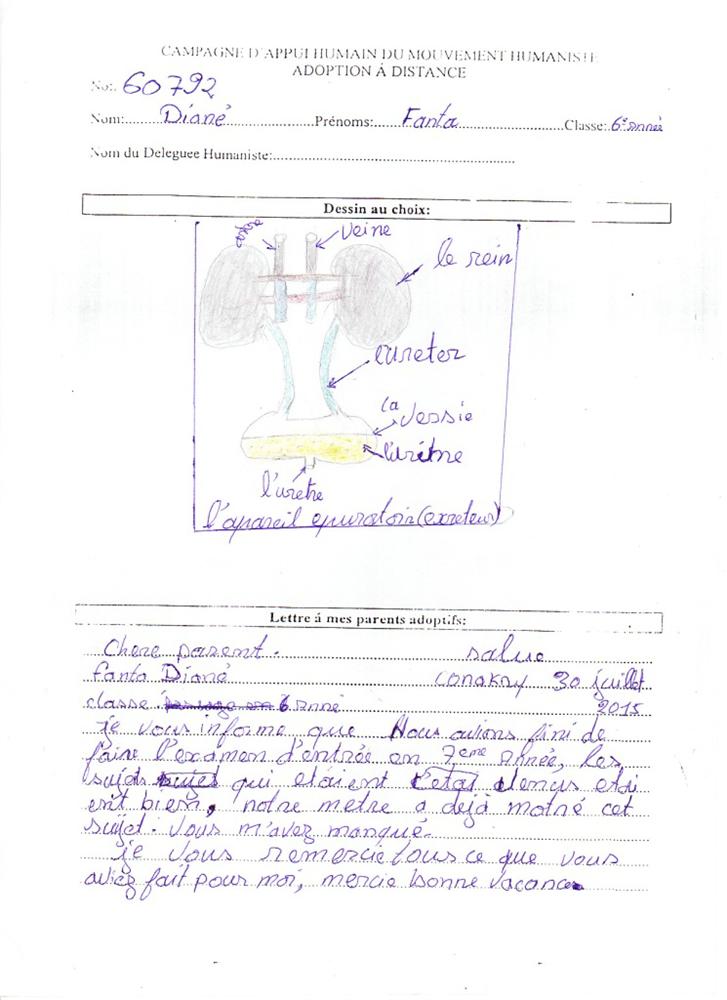 CAMPAGNE D'APPUI HUMAIN DU MOUVEMENT HUMANISTE
ADOPTION Á DISTANCE
No:. 60792
Nom:......Diané......Prénoms:......Fanta......Classe: 6e année
Nom du Deleguee Humaniste:......
Dessin au choix:
veine
le rein
l'ureter
la vessie
l'urétre
l'apareil epuratoir (excreteur)
Lettre á mes parents adoptifs:
Chere parent. salue
Fanta Diané conakry 30 juillet
classe 6 année 2015
je vous informe que Nous avions fini de
faire l'examen d'entrée en 7eme Année, les
sujets qui etaient
ent bien, notre metre a dejà cet
sujet. Vous m'avez manqué.
je vous remercie tous ce que vous
aviez fait pour moi, mercie bonne vacance